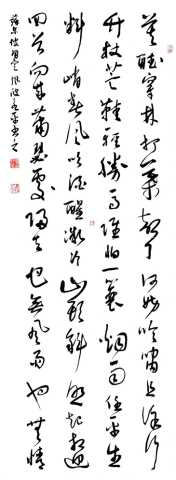 莫聽穿林打葉聲何妨吟嘯且徐行
竹杖芒鞋輕勝馬誰怕一蓑煙雨任平生
料峭春風吹酒醒微冷山頭斜照却相迎
回首向來蕭瑟處歸去也無風雨也無晴
蘇東坡定風波書